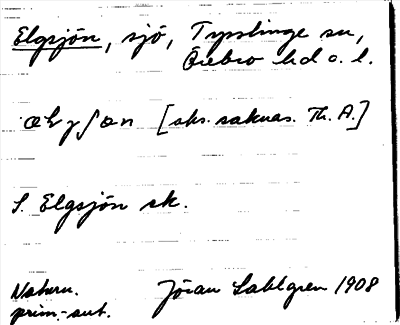 Elgsjön, sjö, Tysslinge sn,
Örebro hd o. l.
[aks. saknas. Th. A.]
S. Elgsjön sk.
Naturn. Jöran Sahlgren 1908
prim.-aut.